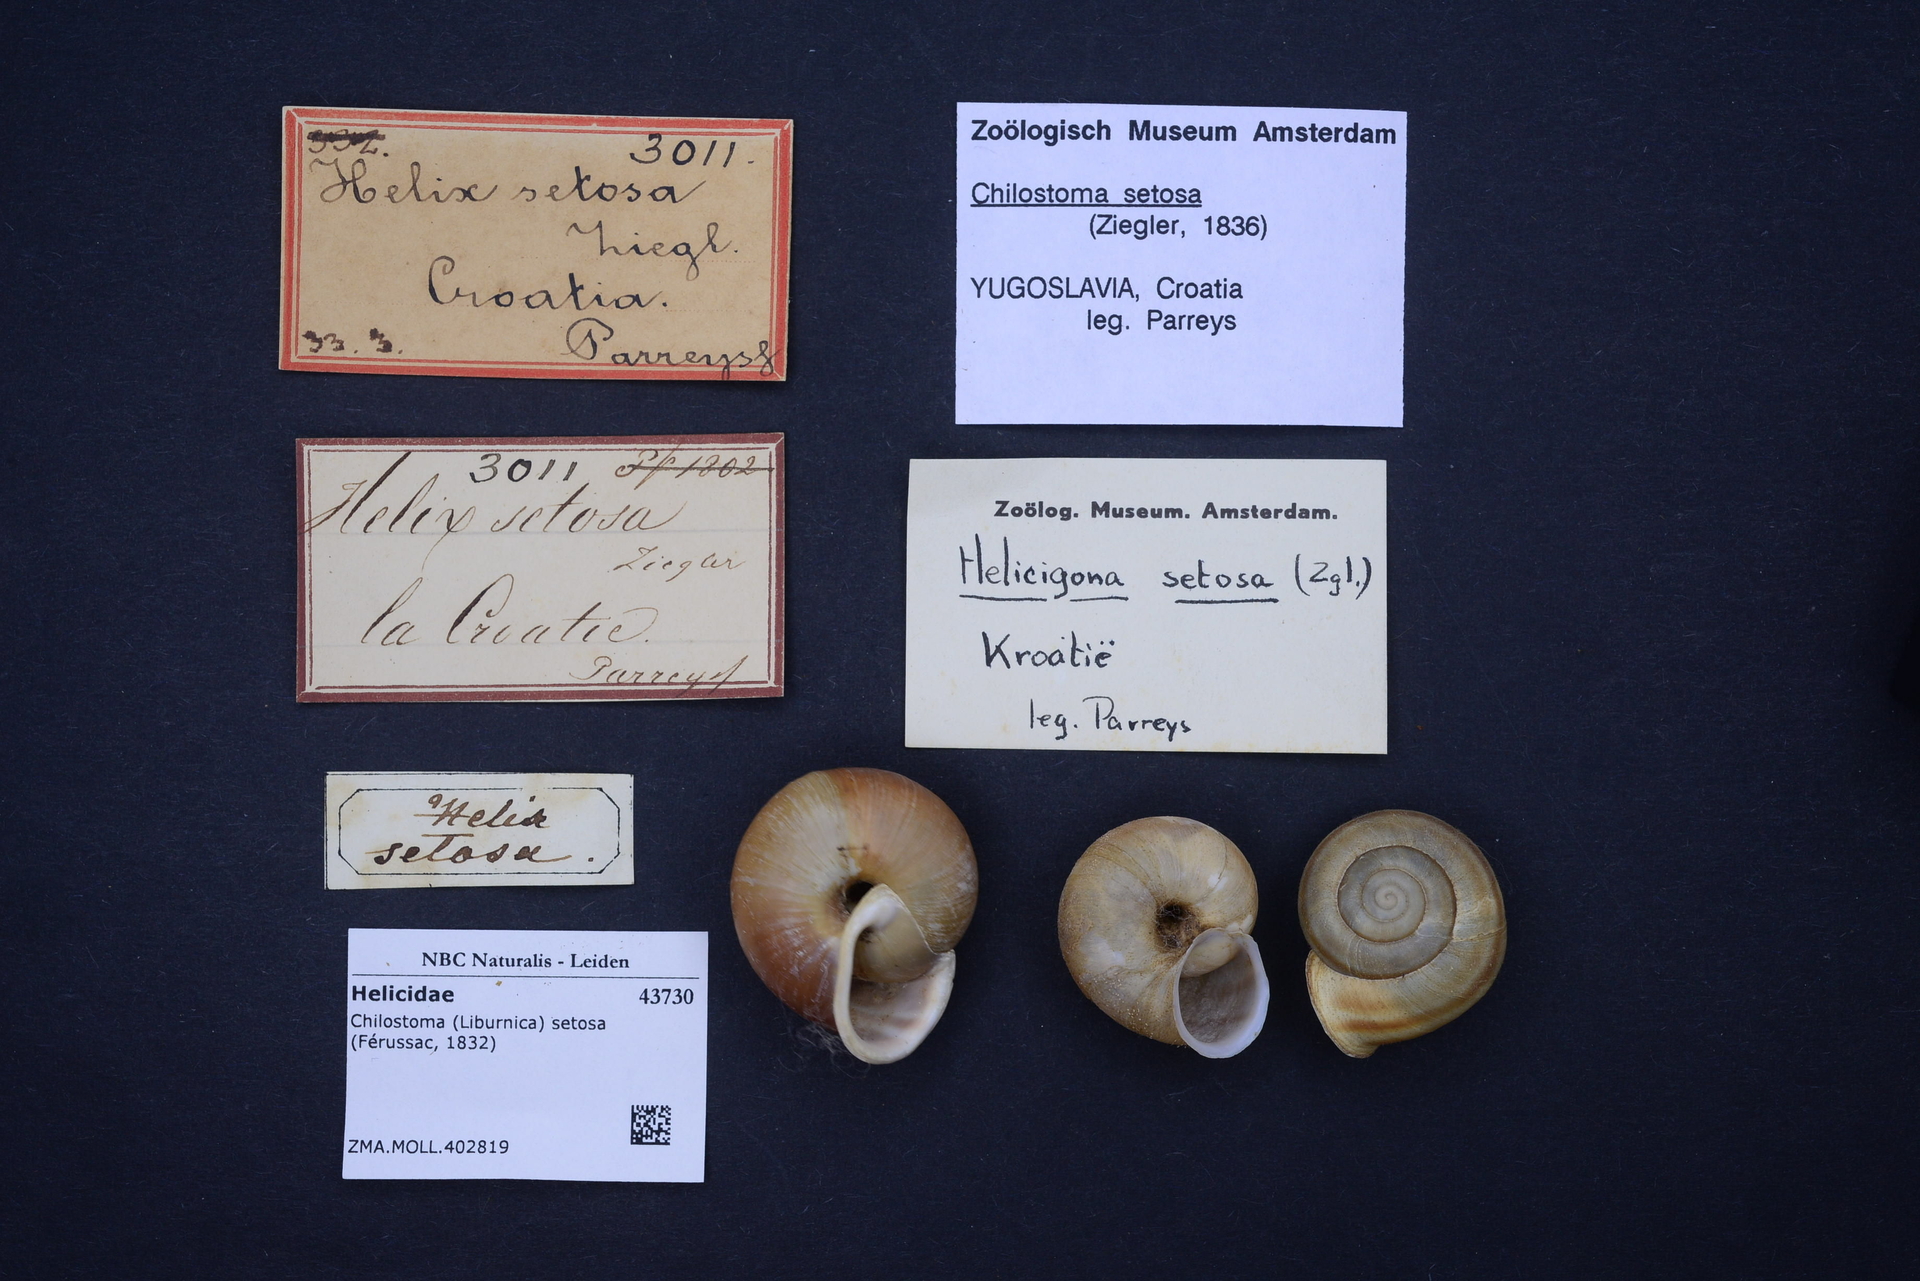 3011.
Helix setosa
Ziegl.
Croatia.
33. 3. Parreyss
3011 Pf 1802
Helix setosa
Ziegler
la Croatie.
Parreyss
Helix
setosa.
NBC Naturalis - Leiden
Helicidae 43730
Chilostoma (Liburnica) setosa
(Férussac, 1832)
ZMA.MOLL.402819
Zoölogisch Museum Amsterdam
Chilostoma setosa
(Ziegler, 1836)
YUGOSLAVIA, Croatia
leg. Parreys
Zoölog. Museum. Amsterdam.
Helicigona setosa (Zgl.)
Kroatië
leg. Parreys